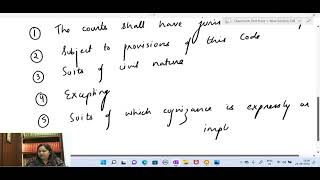 ① The courts shall have juris
② Subject to provisions of this Code
③ Suits of civil nature
④ Excepting
⑤ Suits of which cognizance is expressly or
impl